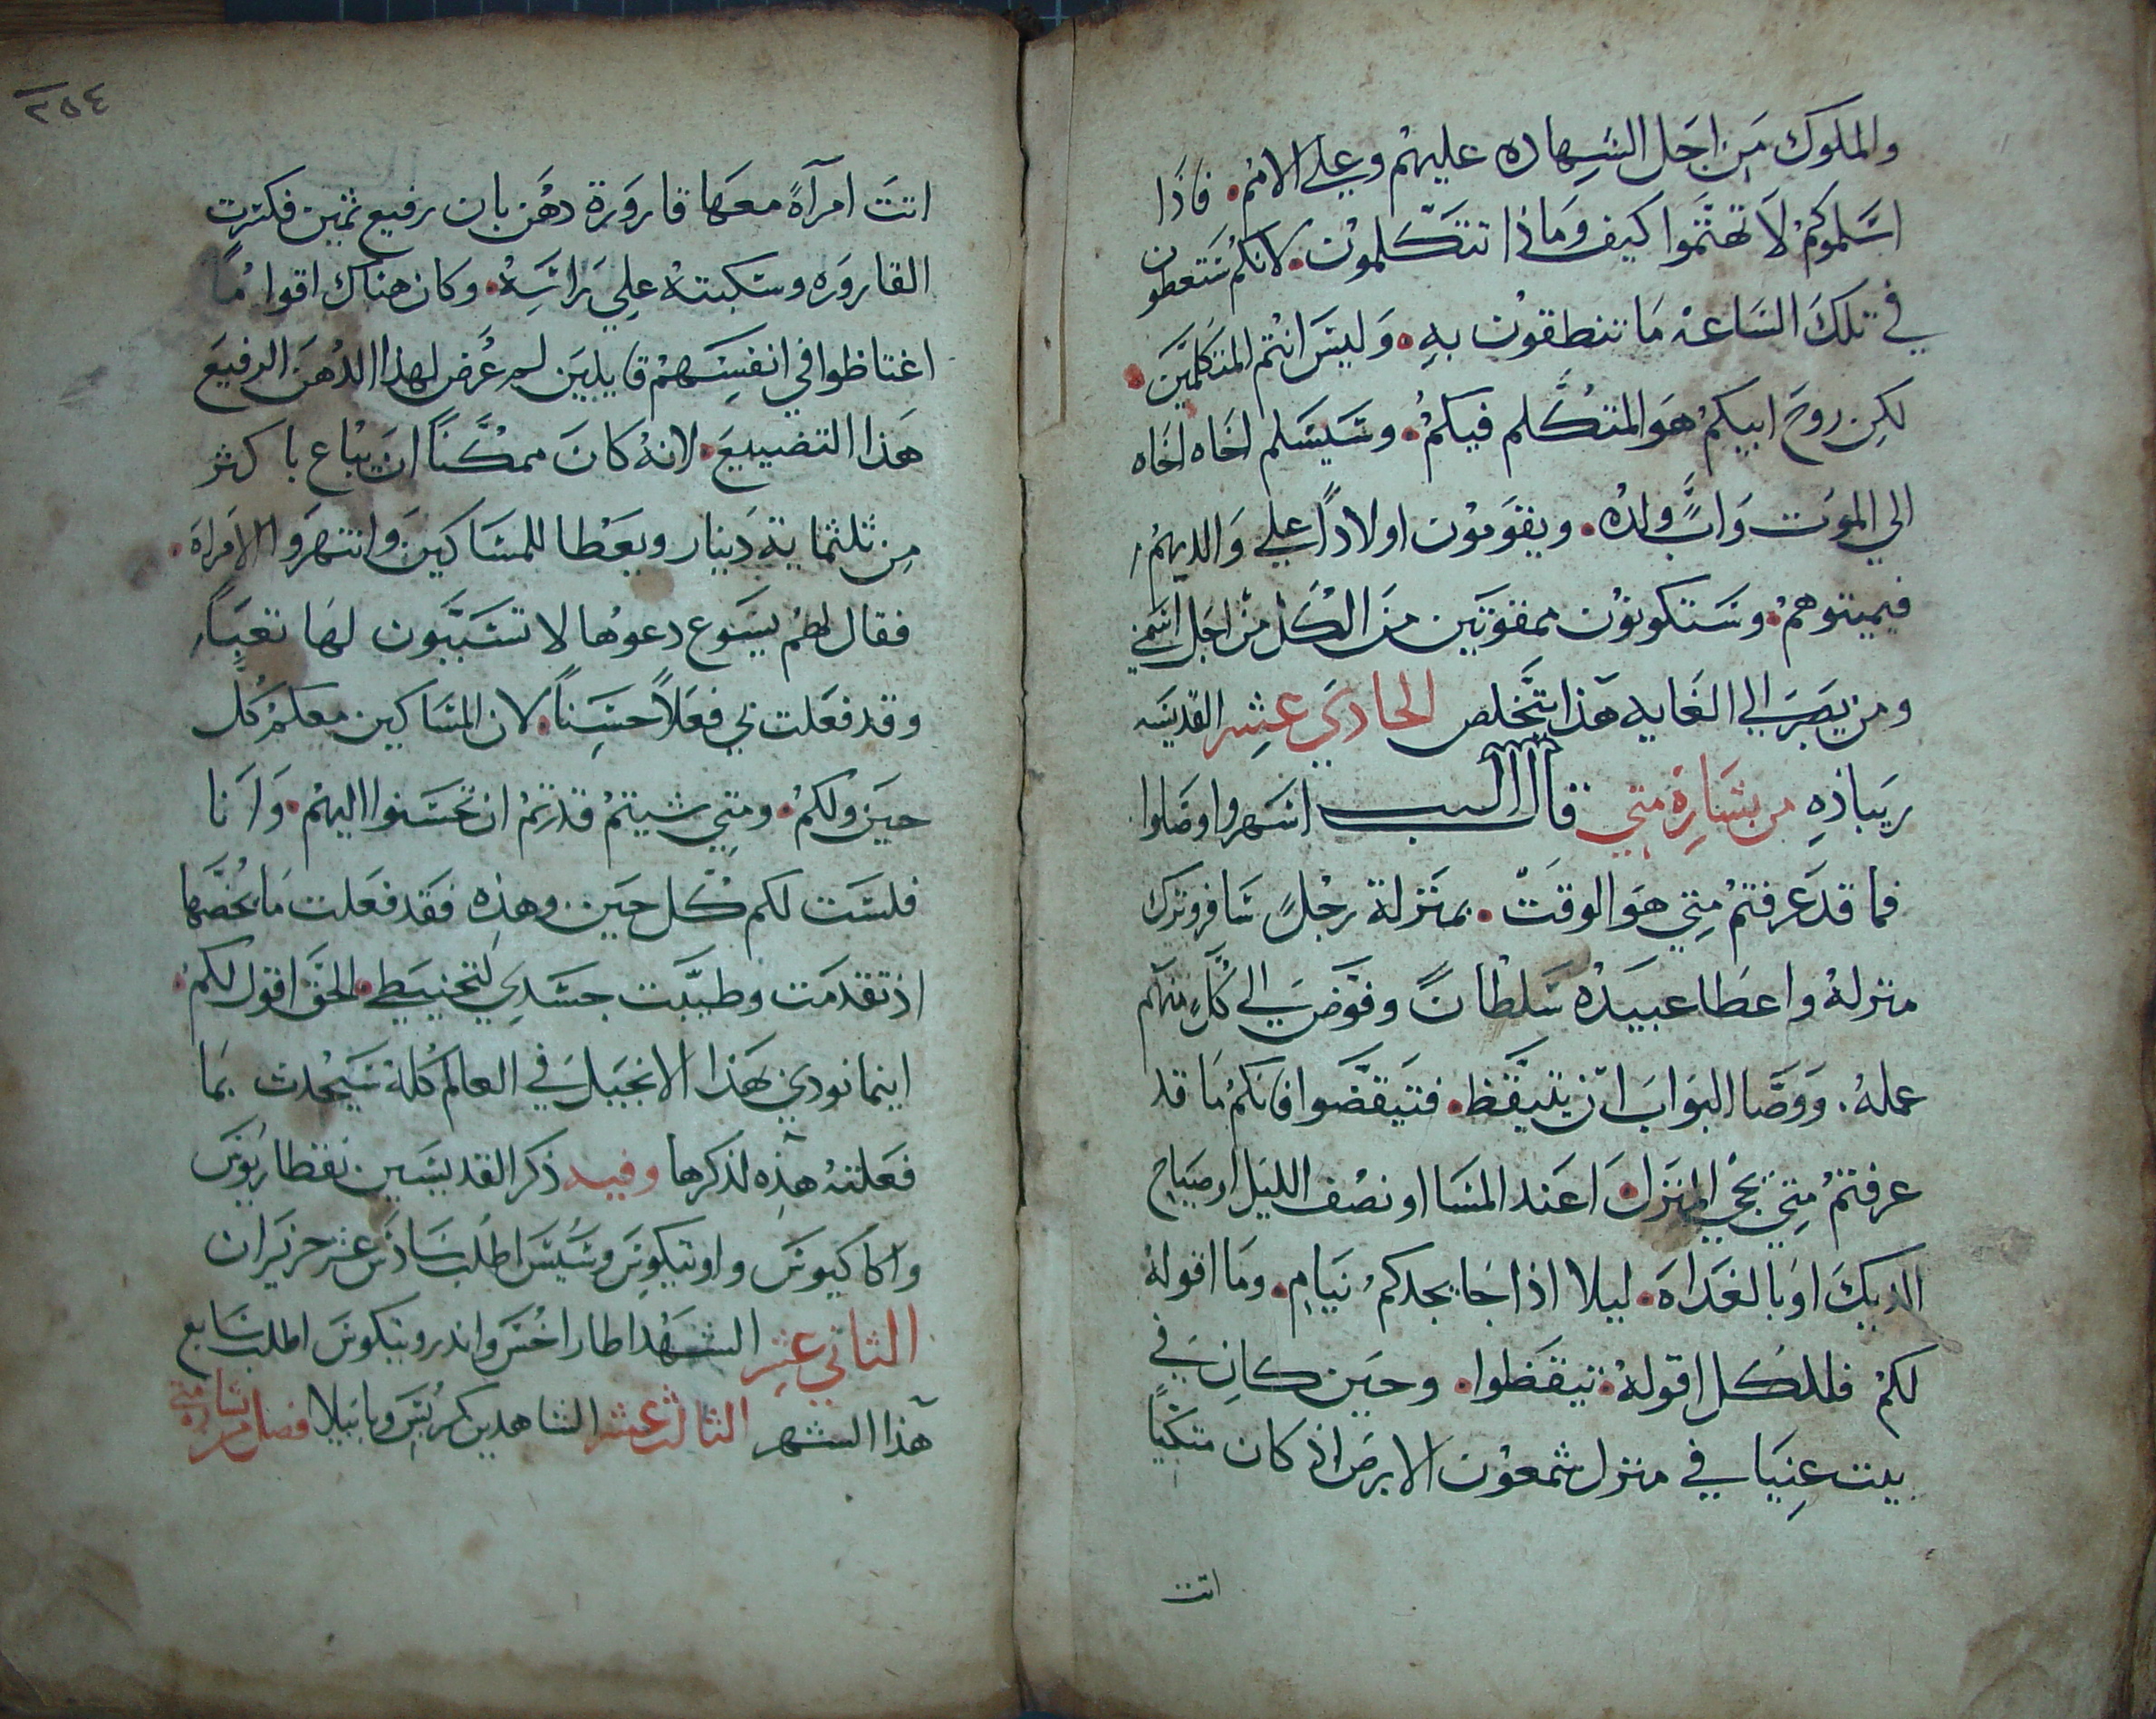 والملوك من اجل الشهاده عليهم وعلي الامم. فاذا
اسلموكم لا تهتموا كيف وماذا تتكلمون. لانكم ستعطون
في تلك الساعه ما تنطقون به. وليس انتم المتكلمين.
لكن روح ابيكم هو المتكلم فيكم. وسيسلم اخاه اخاه
الي الموت واب ولده. ويقومون اولادا علي والديهم
فيميتوهم. وستكونون ممقوتين من الكل من اجل اسمي
ومن يصبر الي الغايه هذا يتخلص الحادي عشر القديسه
ريباذه من بشارة متي قال الرب اسهروا وصلوا
فما قد عرفتم متي هو الوقت. بمنزلة رجل سافر وترك
منزله واعطا عبيده سلطانا وفوض الي كل منهم
عمله. ووصا البواب ان يتيقظ. فتيقضوا فانكم ما قد
عرفتم متي يجي رب المنزل اعند المسا او نصف الليل او صياح
الديك او بالغداه. ليلا اذا جا يجدكم نيام. وما اقوله
لكم فللكل اقوله. تيقظوا. وحين كان في
بيت عنيا في منزل شمعون الابرص اذ كان متكيا
اتت
٢٥٤
اتت امرآة معها قارورة دهن بان رفيع ثمين فكسرت
القاروره وسكبته علي راسه. وكان هناك اقواما
اغتاظوا في انفسهم قايلين لم عرض لهذا الدهن الرفيع
هذا التضييع. لانه كان ممكنا ان يباع باكثر
من ثلثماية دينار ويعطا للمساكين وانتهروا الامراه.
فقال لهم يسوع دعوها لا تسببون لها تعبا
وقد فعلت بي فعلا حسنا. لان المساكين معكم كل
حين ولكم. ومتي شيتم قدرتم ان تحسنوا اليهم. وانا
فلست لكم كل حين وهذه فقد فعلت ما يخصها
اذ تقدمت وطيبت جسدي لتحنيطي. الحق اقول لكم.
اينما نودي بهذا الانجيل في العالم كله سيحدث بما
فعلته هذه لذكرها وفيه ذكر القديسين نقطاريوس
واكاكيوس واوتيكوس وسيس اطلب سادس عشر حزيران
الثاني عشر الشهدا طاراخس واندرونيكوس اطلب سابع
هذا الشهر الثالث عشر الشاهدين كربس وبابيلا فصل من بشارة متي